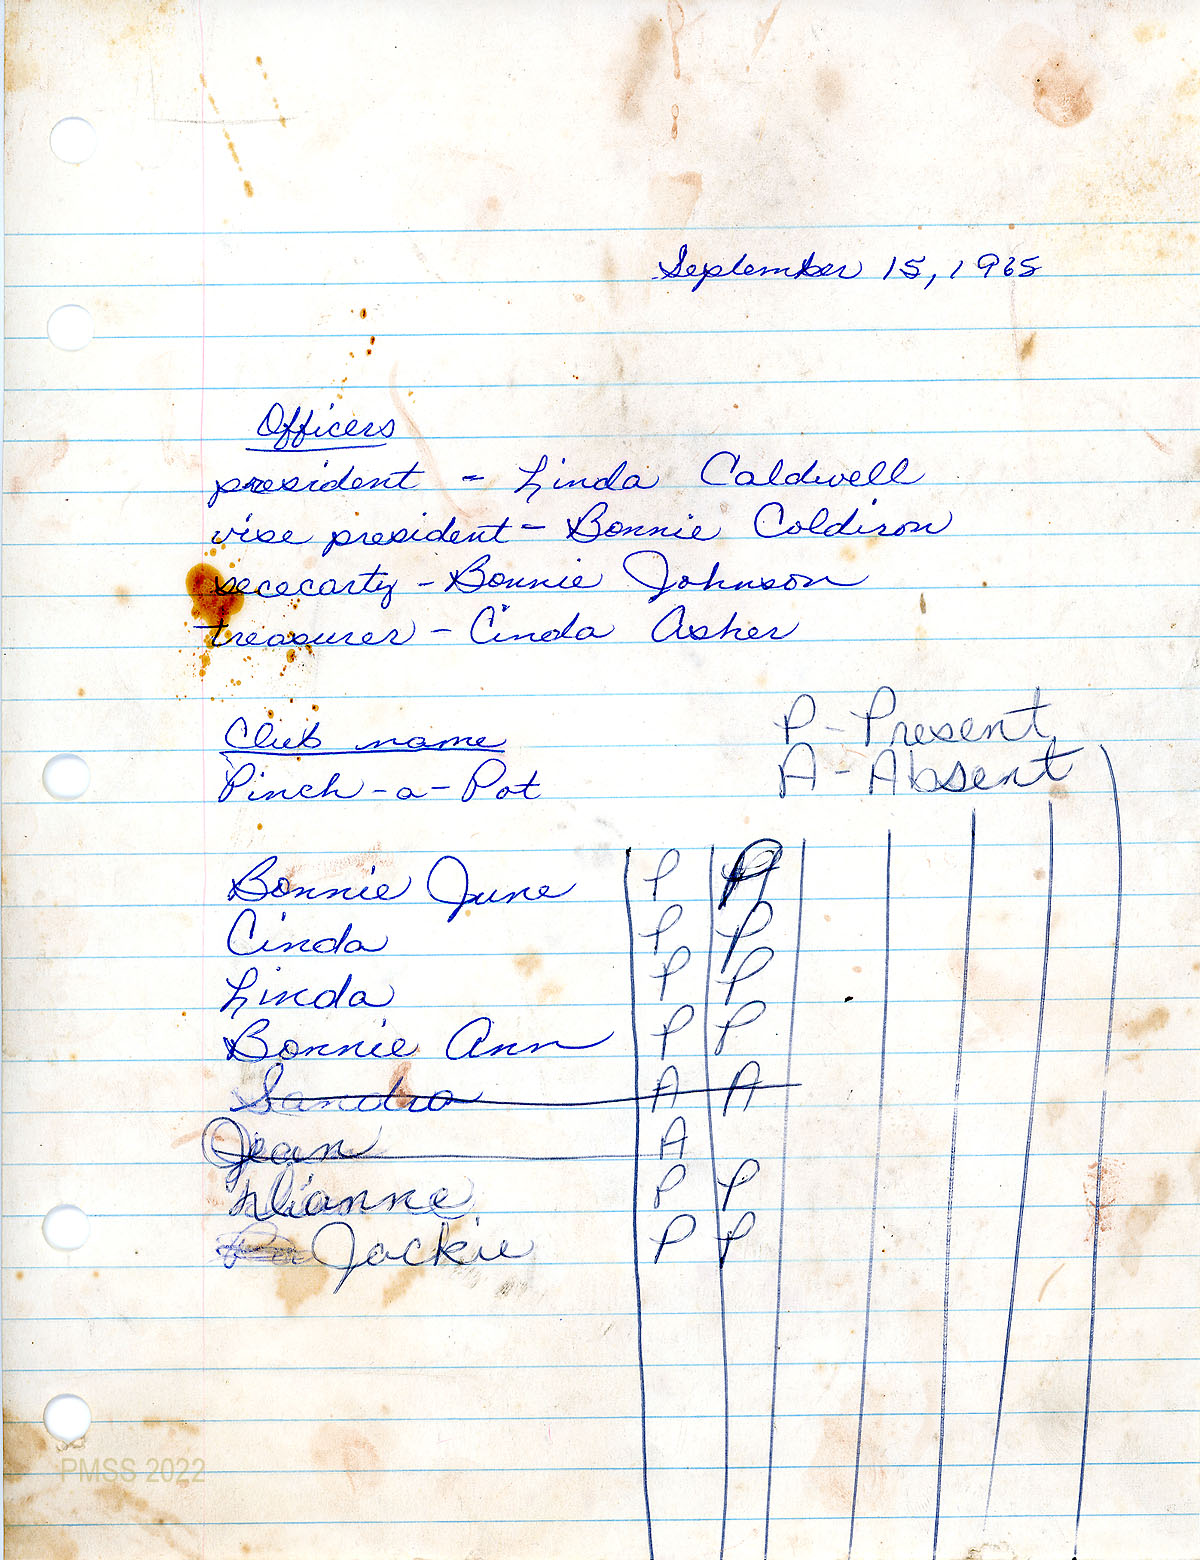 September 15, 1965
Officers
president - Linda Caldwell
vise president - Bonnie Coldiron
sececarty - Bonnie Johnson
treasurer - Cinda Asher
Club name
Pinch-a-Pot
P - Present
A - Absent
Bonnie June P P
Cinda P P
Linda P P
Bonnie Ann P P
Sandra A A
Jean A
Dianne P P
Jackie P P
PMSS 2022